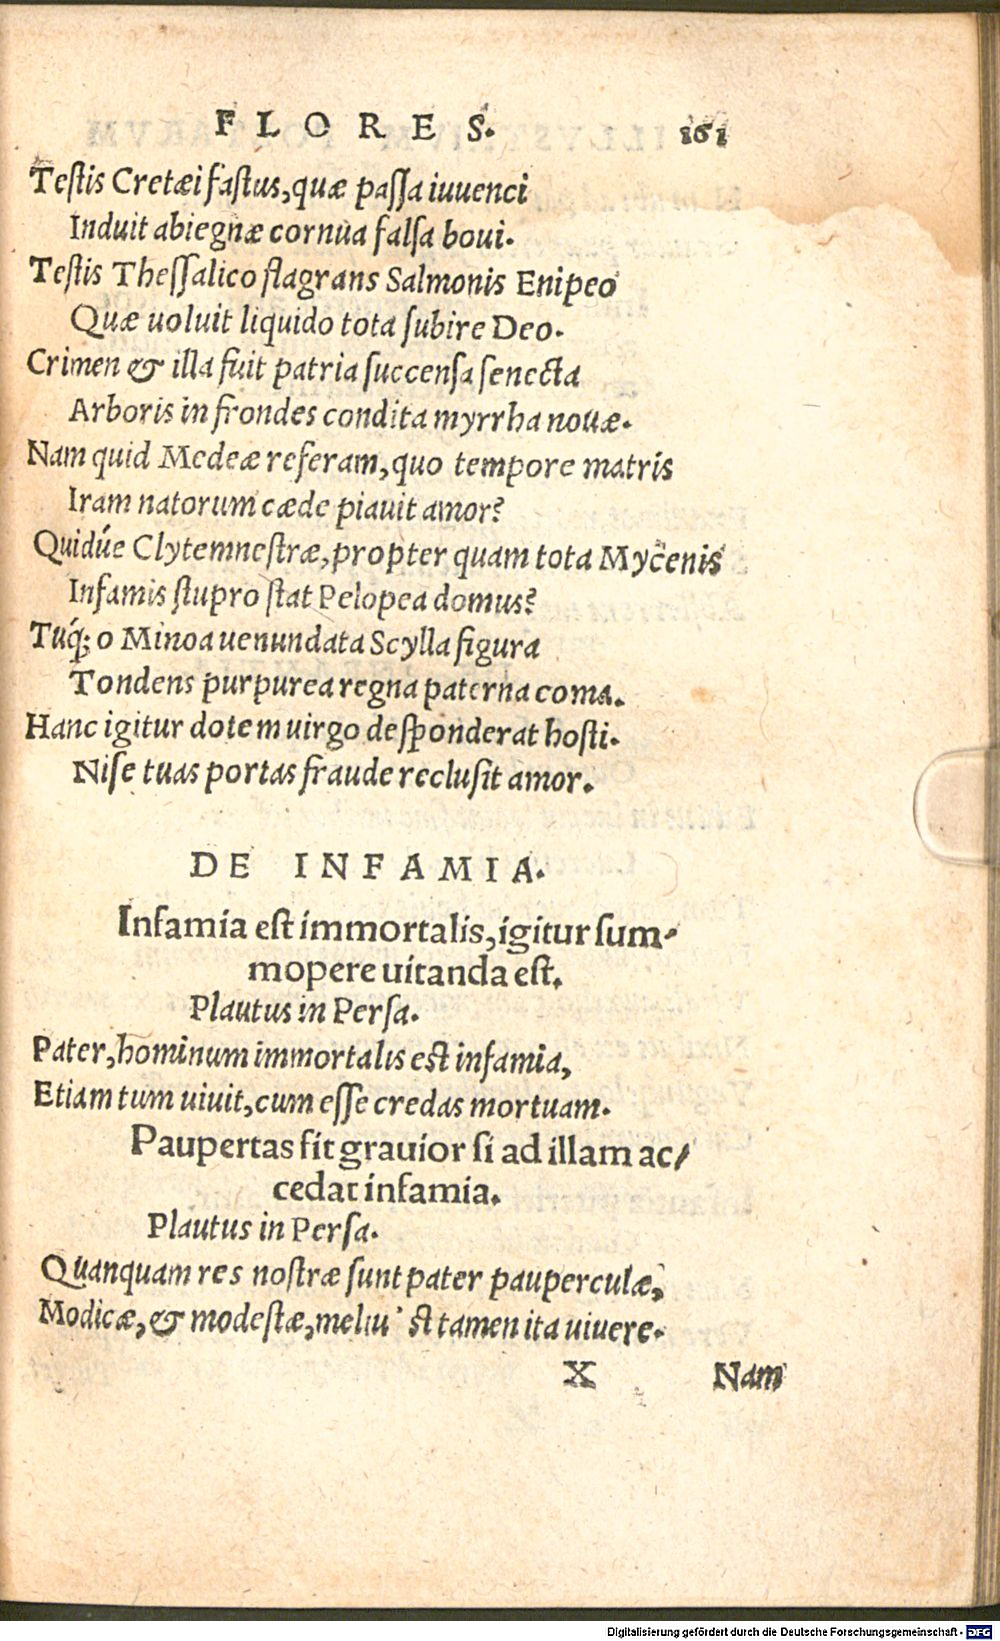 FLORES. 161
Testis Cretæi fastus, quæ passa iuuenci
Induit abiegnæ cornua falsa boui.
Testis Thessalico flagrans Salmonis Enipeo
Quæ uoluit liquido tota subire Deo.
Crimen & illa fuit patria succensa senecta
Arboris in frondes condita myrrha nouæ.
Nam quid Medeæ referam, quo tempore matris
Iram natorum cæde piauit amor?
Quidúe Clytemnestræ, propter quam tota Mycenis
Infamis stupro stat Pelopea domus?
Tuq́; o Minoa uenundata Scylla figura
Tondens purpurea regna paterna coma.
Hanc igitur dotem uirgo desponderat hosti.
Nise tuas portas fraude reclusit amor.
DE INFAMIA.
Infamia est immortalis, igitur sum-
mopere uitanda est.
Plautus in Persa.
Pater, hominum immortalis est infamia,
Etiam tum uiuit, cum esse credas mortuam.
Paupertas fit grauior si ad illam ac/
cedat infamia.
Plautus in Persa.
Quanquam res nostræ sunt pater pauperculæ,
Modicæ, & modestæ, meliu' st tamen ita uiuere.
X Nam
Digitalisierung gefördert durch die Deutsche Forschungsgemeinschaft - DFG